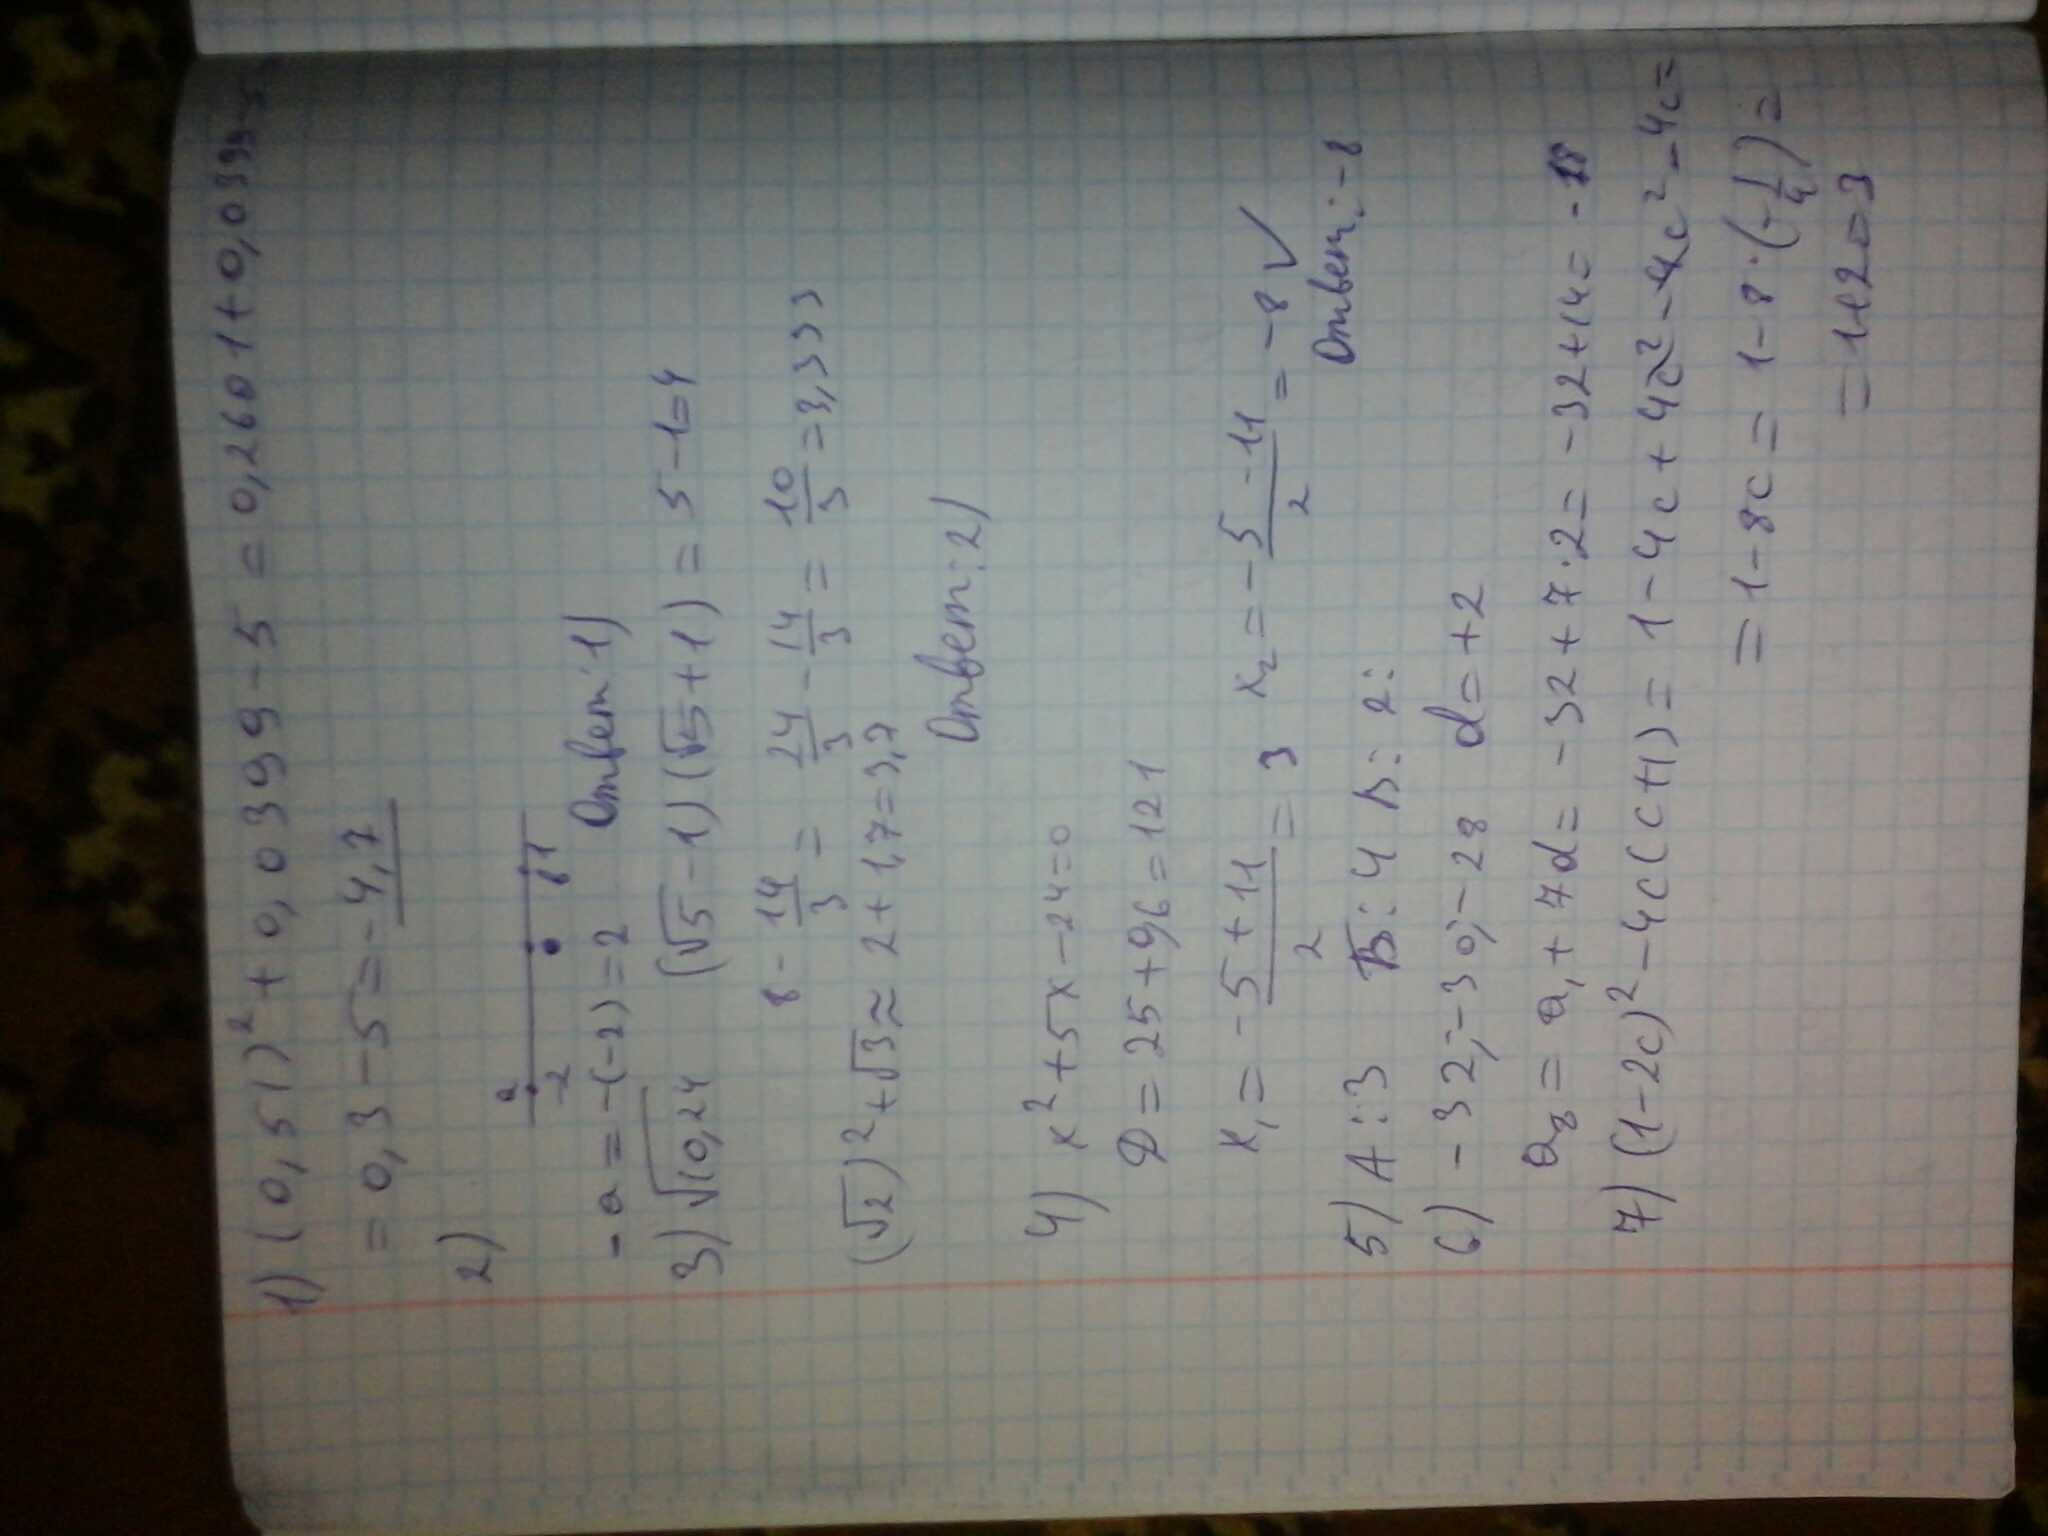 1) (0,51)² + 0,0399 - 5 = 0,2601 + 0,0399 - 5
= 0,3 - 5 = -4,7
2)
a 0 в
-2 1
-a = -(-2) = 2 Ответ: 1)
3) √10,24 (√5 - 1)(√5 + 1) = 5 - 1 = 4
8 - 14/3 = 24/3 - 14/3 = 10/3 = 3,333
(√2)² + √3 ≈ 2 + 1,7 = 3,7
Ответ: 2)
4) x² + 5x - 24 = 0
D = 25 + 96 = 121
x₁ = -5 + 11/2 = 3 x₂ = -5 - 11/2 = -8 ✓
Ответ: -8
5) А: 3 Б: 4 В: 2
6) -32; -30; -28 d = +2
a₈ = a₁ + 7d = -32 + 7·2 = -32 + 14 = -18
7) (1 - 2c)² - 4c(c+1) = 1 - 4c + 4c² - 4c² - 4c =
= 1 - 8c = 1 - 8·(-1/4) =
= 1 + 2 = 3